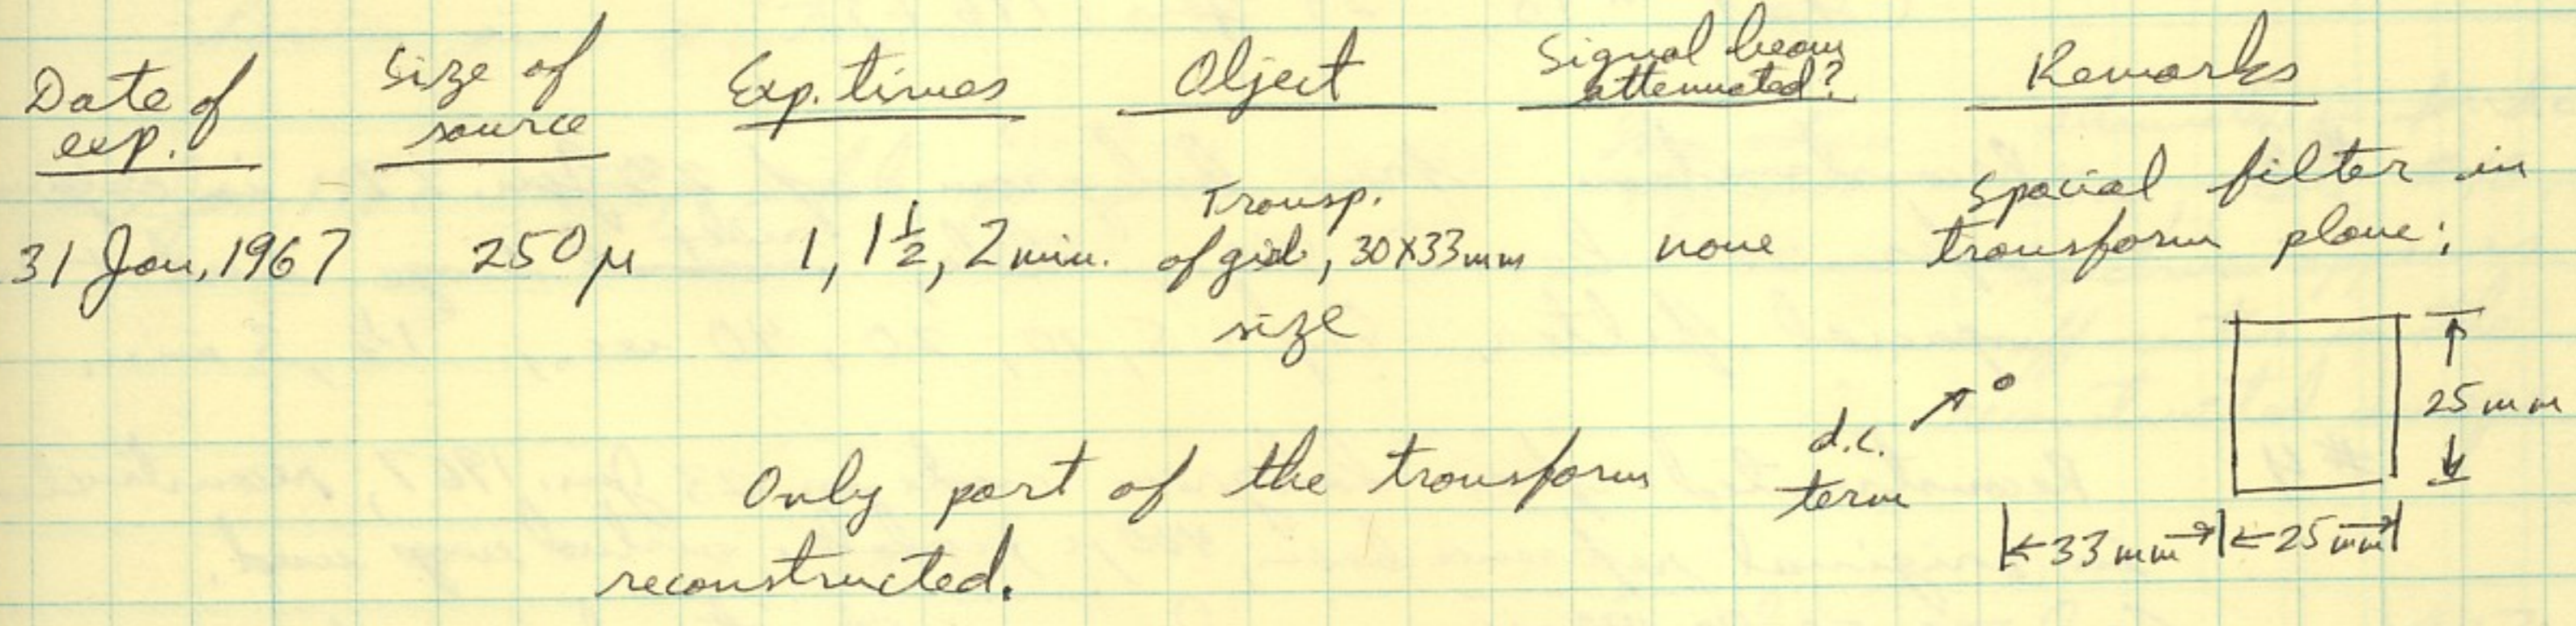 Date of
exp.
Size of
source
Exp. times
Object
Signal beam
attenuated?
Remarks
31 Jan, 1967
250 µ
1, 1½, 2 min.
Transp.
of girl, 30X33mm
size
none
Spacial filter in
transform plane:
25 mm
d.c.
term
33 mm
25 mm
Only part of the transform
reconstructed.